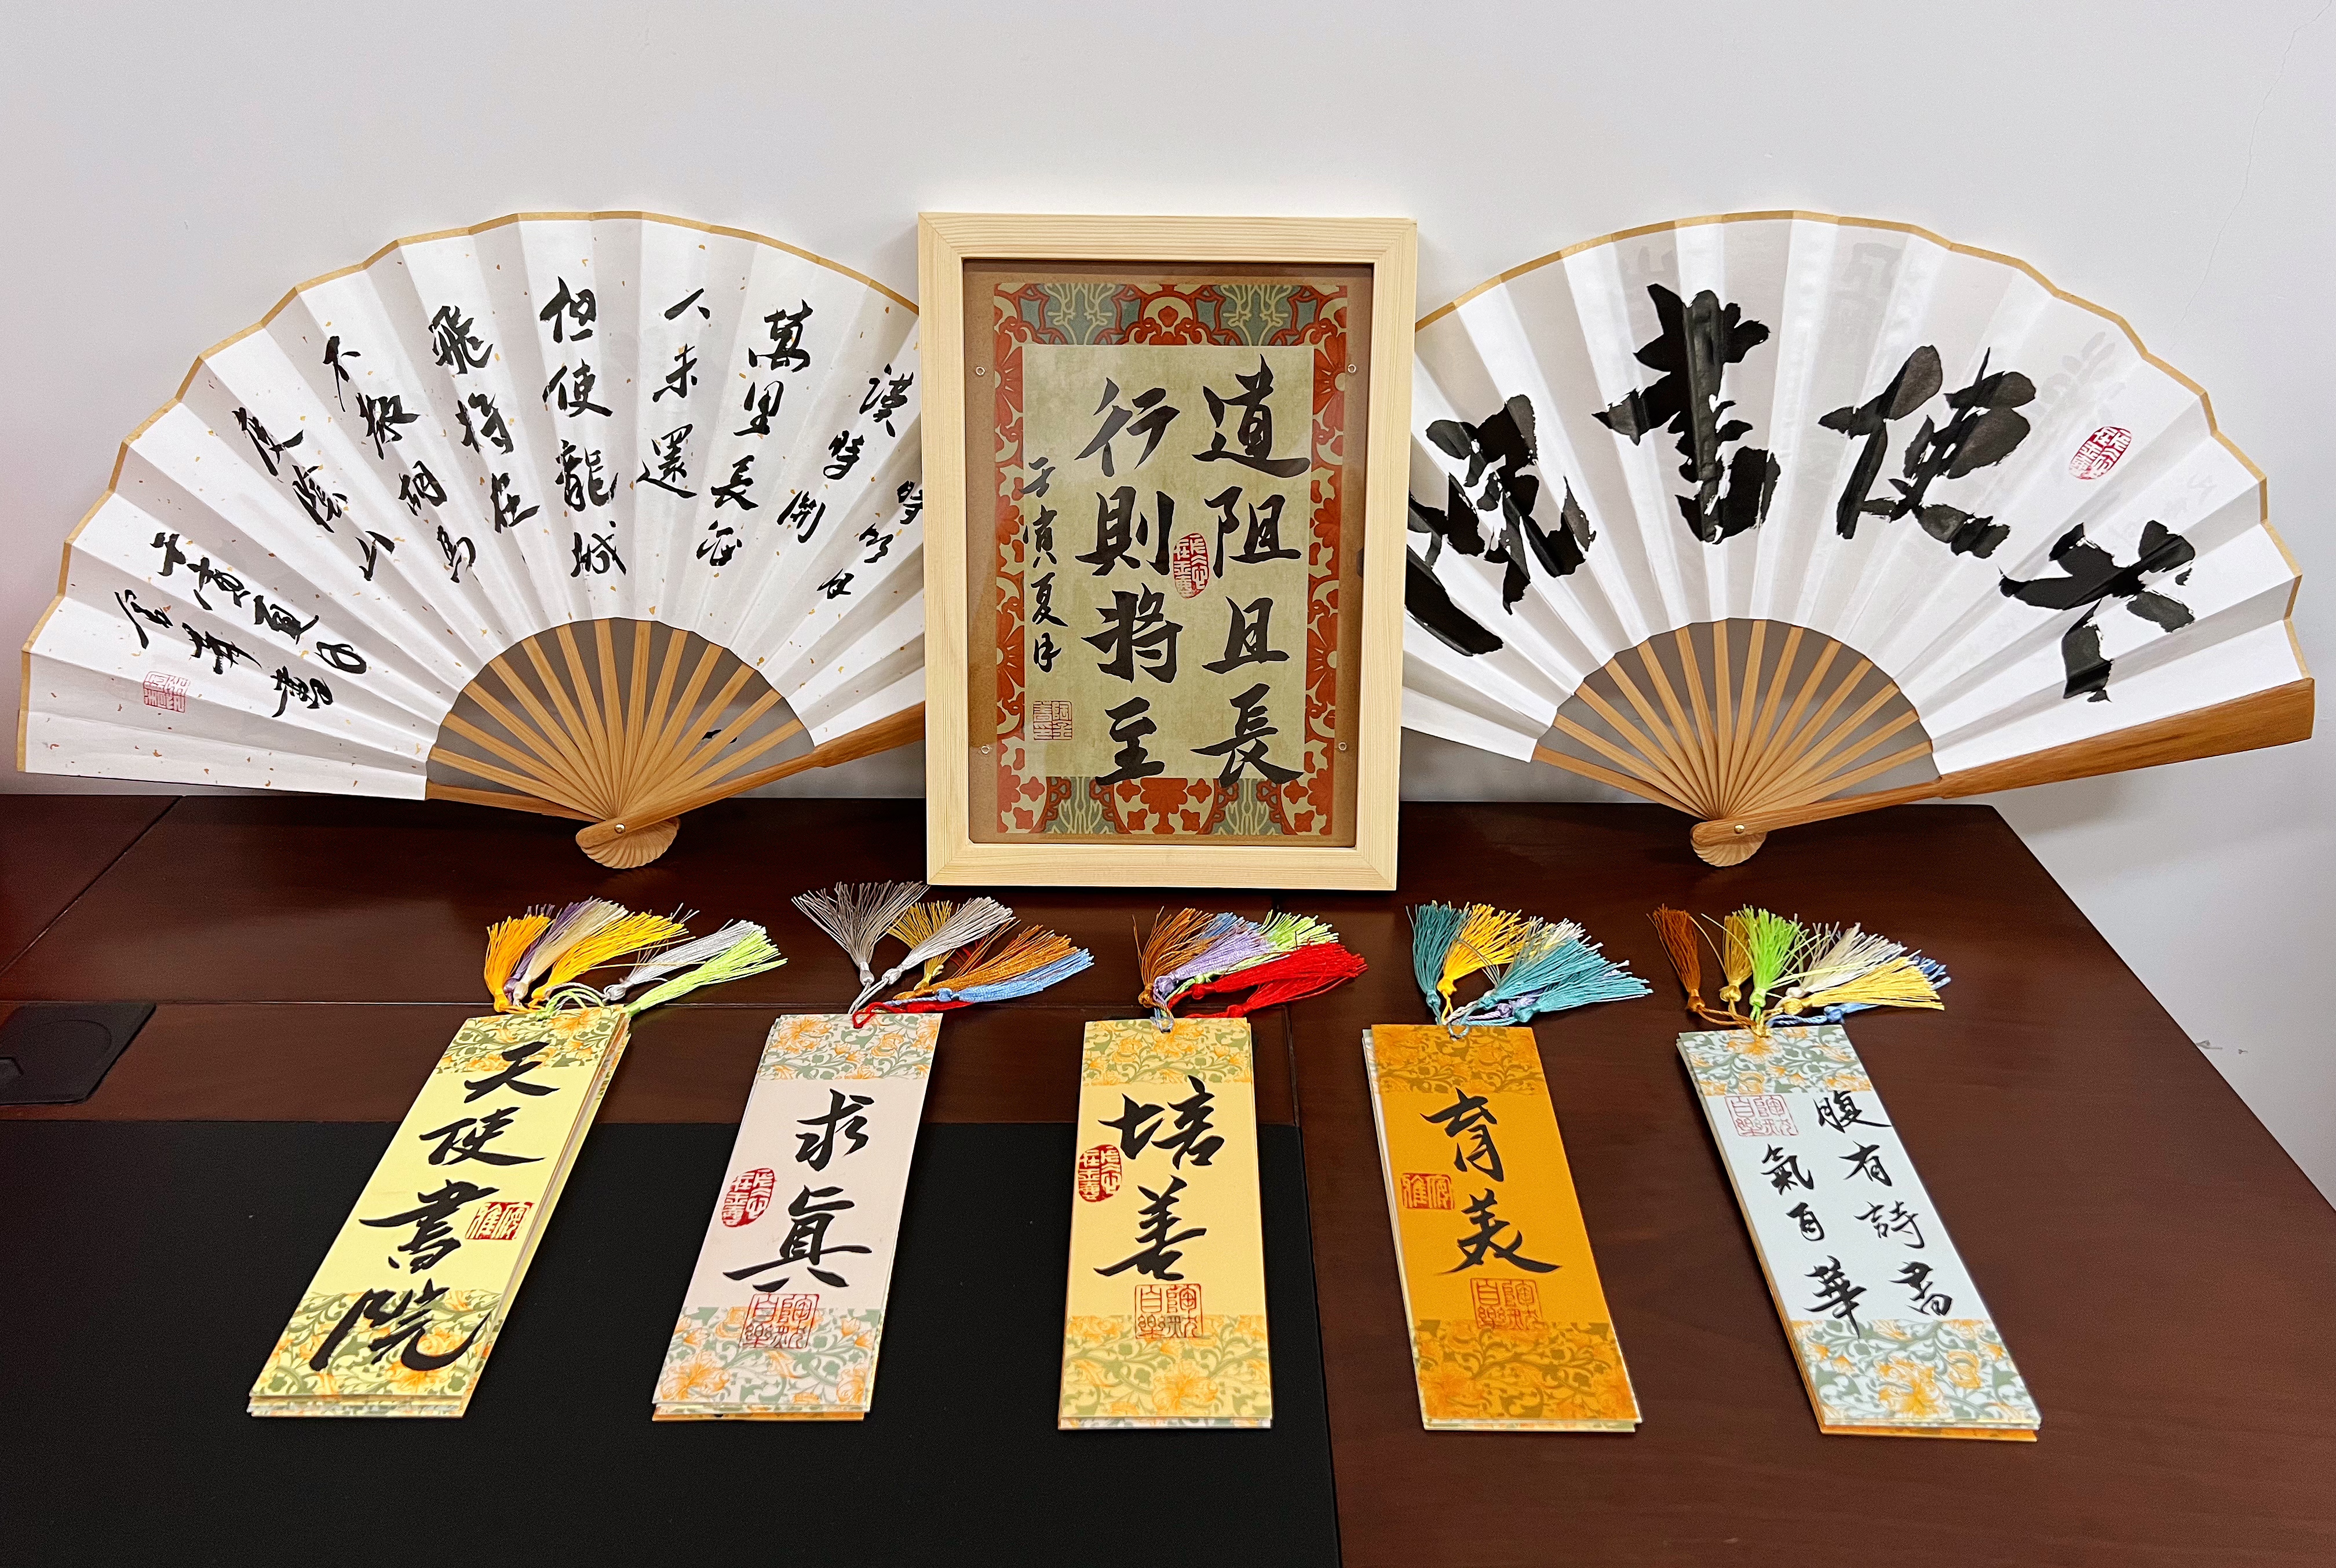 時明月
漢時關
萬里長征
人未還
但使龍城
飛將在
不教胡馬
度陰山
壬寅夏日
道阻且長
行則將至
壬寅夏月
天使書院
天使書院
求眞
培善
育美
腹有詩書
氣自華